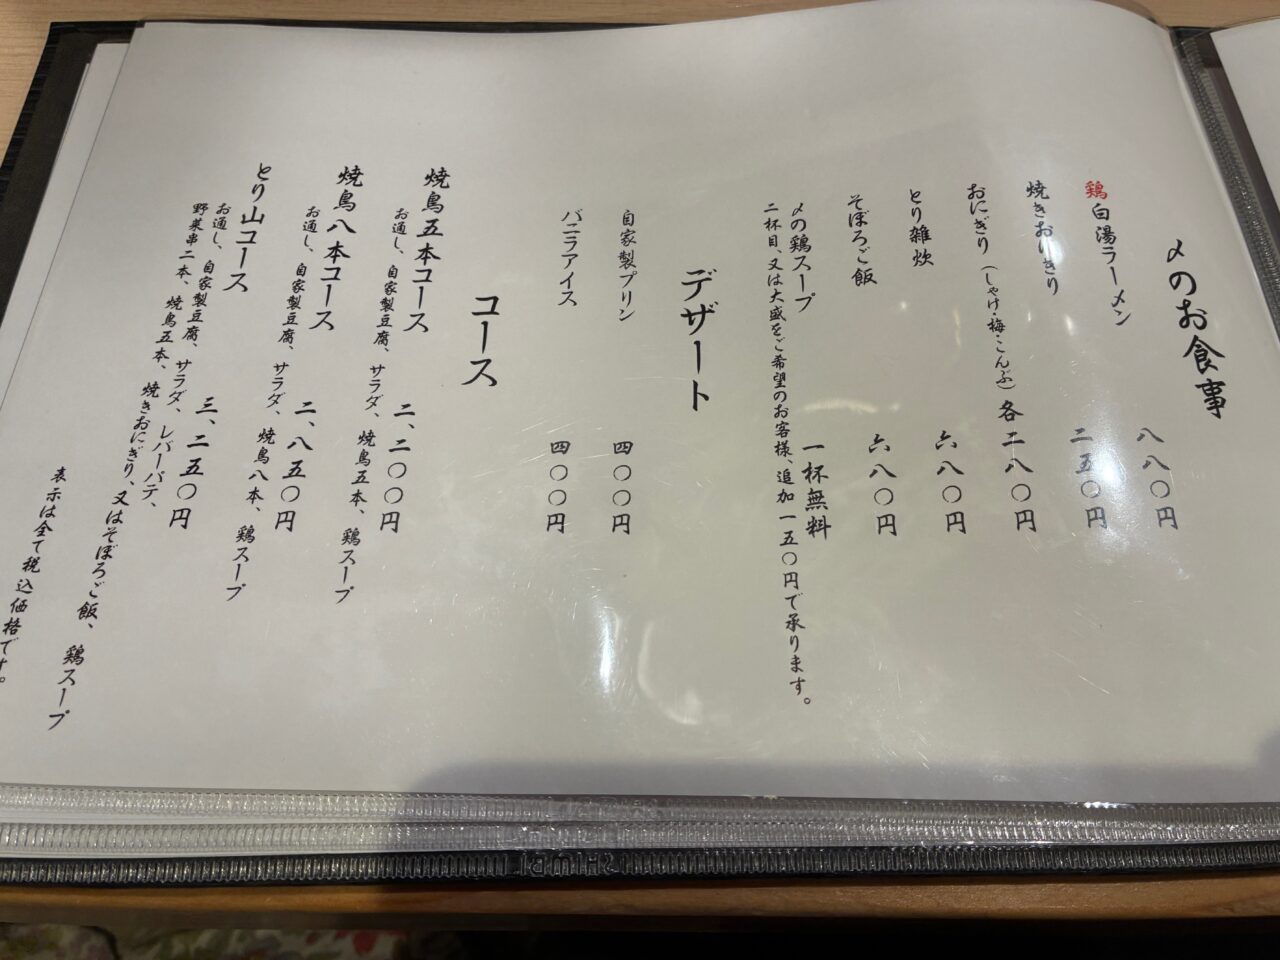 〆のお食事
鶏白湯ラーメン 八八〇円
焼きおにぎり 二五〇円
おにぎり（しゃけ・梅・こんぶ）各二八〇円
とり雑炊 六八〇円
そぼろご飯 六八〇円
〆の鶏スープ 一杯無料
二杯目、又は大盛をご希望のお客様、追加一五〇円で承ります。
デザート
自家製プリン 四〇〇円
バニラアイス 四〇〇円
コース
焼鳥五本コース 二、二〇〇円
お通し、自家製豆腐、サラダ、焼鳥五本、鶏スープ
焼鳥八本コース 二、八五〇円
お通し、自家製豆腐、サラダ、焼鳥八本、鶏スープ
とり山コース 三、二五〇円
お通し、自家製豆腐、サラダ、レバーパテ、
野菜串二本、焼鳥五本、焼きおにぎり、又はそぼろご飯、鶏スープ
表示は全て税込価格です。